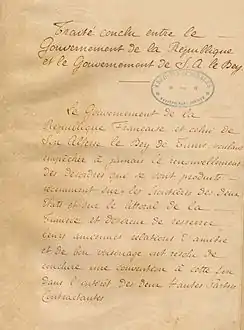 Traité conclu entre le
Gouvernement de la République
et le Gouvernement de S. A. le Bey
Le Gouvernement de la
République Française et celui de
Son Altesse le Bey de Tunis, voulant
empêcher à jamais le renouvellement
des désordres qui se sont produits
récemment sur les frontières des deux
Etats et sur le littoral de la
Tunisie et désireux de resserrer
leurs anciennes relations d'amitié
et de bon voisinage ont résolu de
conclure une convention à cette fin
dans l'intérêt des deux Hautes Parties
Contractantes